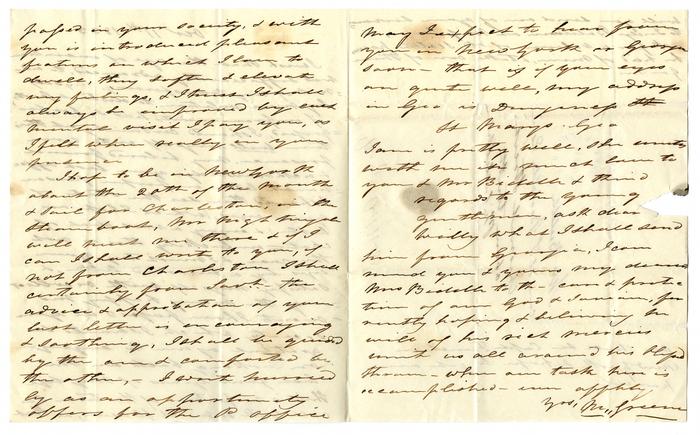 passed in your society, & with
you is introduced pleasant
features on which I love to
dwell, they soften & elevate
my feelings, & I trust I shall
always be improved by each
mental visit I pay you, as
I felt when really in your
presence
I hope to be in New York
about the 20th of the month
& sail for Charleston in the
steam boat, Mr Nightingale
will meet me there & if I
can I shall write to you, if
not from Charleston I shall
certainly from Savh. the
advice & approbation of your
last letter is encouraging
& soothing, I shall be guided
by the one & comforted by
the other, - I write hurried
ly as an opportunity
offers for the P office
May I expect to hear from
you in New York or Georgia
soon - that is if your eyes
are quite well, my address
in Geo is Dungeness
St Marys. Geo
is pretty well, She unites
with me in much love to
you & Mrs Biddle & kind
regards to the young
gentlemen, ask dear
Willy what I shall send
him from Georgia, I com
mend you & yours my dear
Mrs Biddle to the care & protec
tion of our God & Saviour,
hoping & believing he
will of his rich mercies
unite us all around his blessed
throne - when our task here is
accomplished - ever affly
Yrs, M., Greene